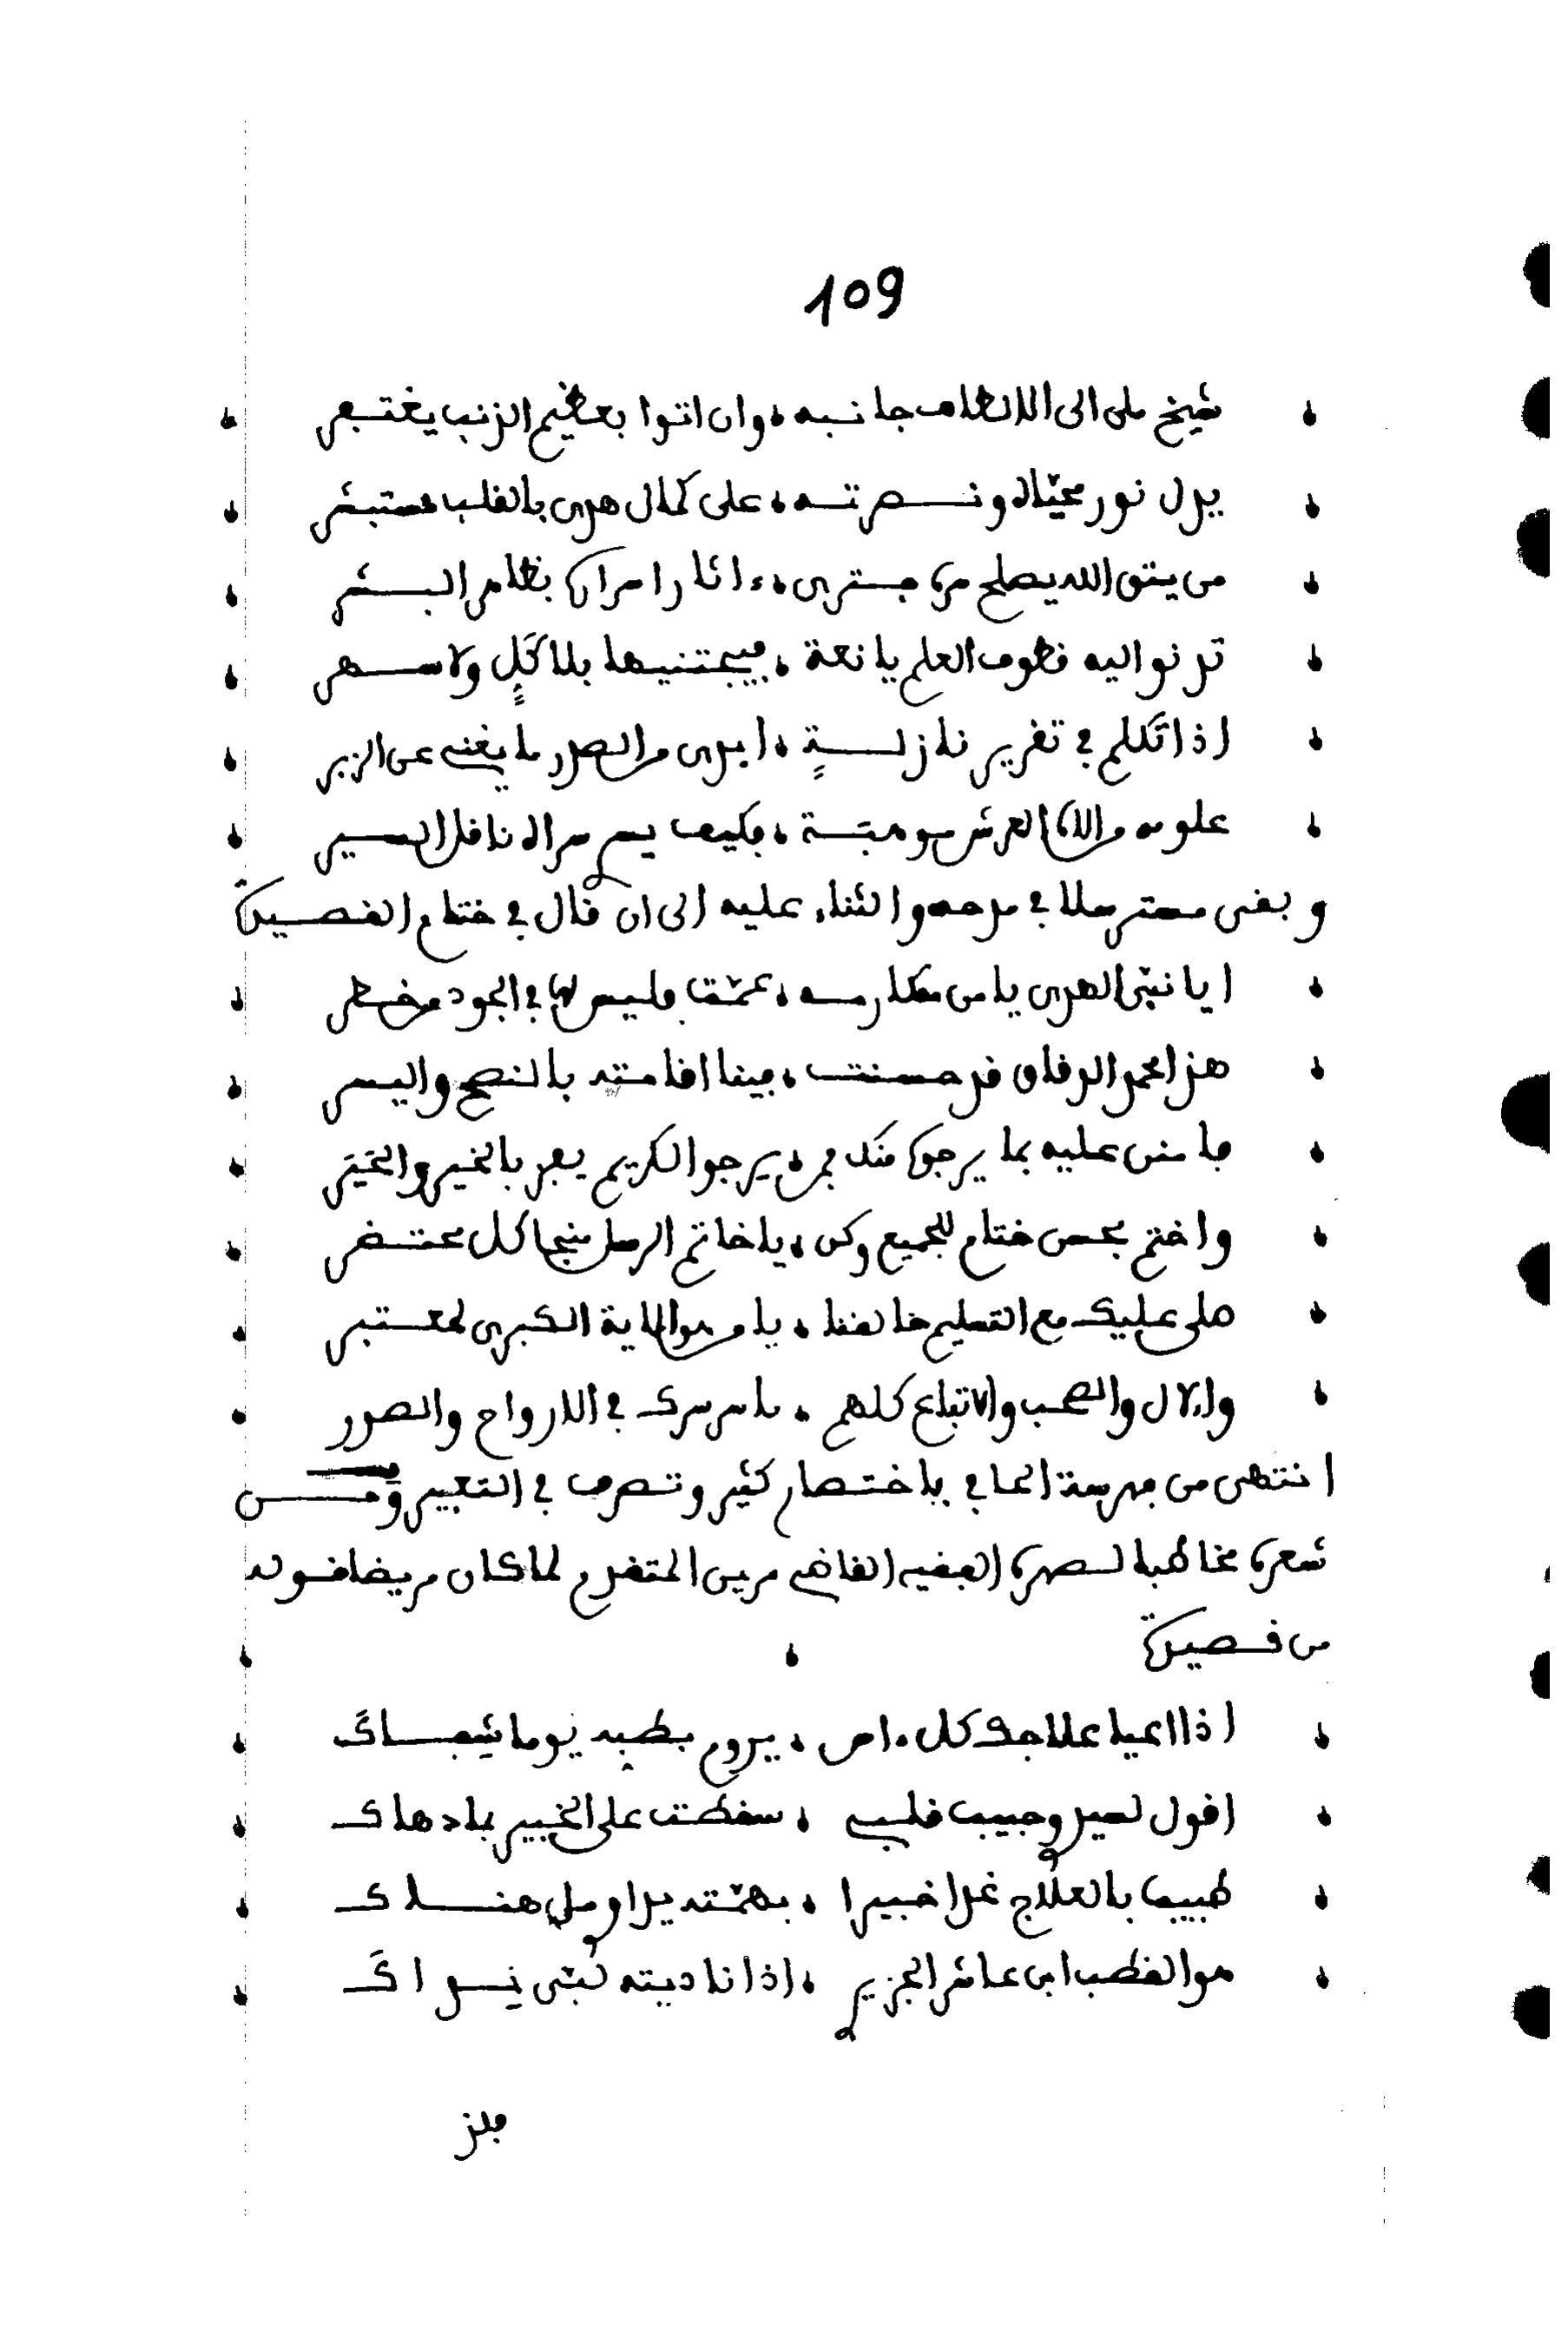 109
شيخ ملى الى الالطاف جانبه ، وان اتوا بعظيم الذنب يغتفر
يدل نور محياه ونصرته ، على كمال هدى بالقلب مستتر
من يتق الله يصلح سره وترى ، ءاثارا سراره بظاهر البشر
تدنوا اليه قطوف العلم يانعة ، فيجتنيها بلا كد ولا سهر
اذا تكلم في تقرير نازلة ، ابدى من الصدر ما يغني عن الزبر
علومه من الاه العرش موهبة ، فكيف يسبر سراه ناقل السير
وبقى مسترسلا في مدحه والثناء عليه الى ان قال في ختام القصيدة
ايا نبي الهدى يا من مكارمه ، عمت فليس لها في الجود من خطر
هذا محمد الرقاق قد حسنت ، فينا اقامته بالنصح واليسر
فامنن عليه بما يرجوه منك فمن ، يرجوا الكريم يفز بالخير والخير
واختم بحسن ختام للجميع وكن ، يا خاتم الرسل منجا كل محتضر
صلى عليك مع التسليم خالقنا ، يا من هو الاية الكبرى لمعتبر
والال والصحب والاتباع كلهم ، ما سر سرك في الارواح والصور
انتهى من فهرسة الحافي باختصار كثير وتصرف في التعبير ومن
شعره مخاطبا لصهره الفقيه القاضي مرين المتقدم لما كان مريضا قوله
من قصيدة
اذا اعيا علاجك كل ءاس ، يروم بطبه يوما شفاك
اقول لسيدي وحبيب قلبي ، سقطت على الخبير بما دهاك
طبيب بالعلاج غدا خبيرا ، بهمته يداوي من هناك
هو القطب ابن عاشر الجزيري ، اذا ناديته لبى نداك
فلذ